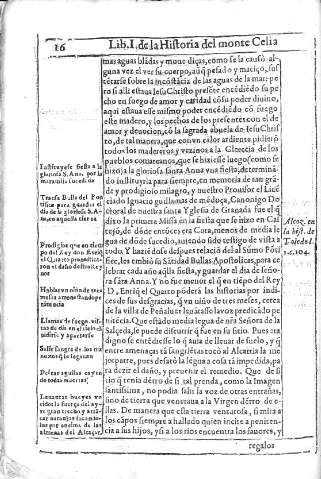 16
Lib. I. de la Historia del monte Celia
mas aguas blãdas y mouedizas, como se la causò al-
guna vez el ver su cuerpo, aũq̃ pesado y maciço, sus
tẽtarse sobre la incõstãcia de las aguas de la mar: pe
ro si alli estaua Iesu Christo presẽte encẽdido su pe
cho en fuego de amor y caridad cõ su poder diuino,
aqui estaua esse mismo poder encẽdiẽdo cõ fuego
este madero, y los pechos de los presentes con el de
amor y deuocion, cõ la sagrada abuela de Iesu Chris
to, de tal manera, que con vn calor ardiente pidiērō
todos los maderos, y vezinos a la Clerecia de los
pueblos comarcanos, que se hiziesse luego (como se
hizo) a la gloriosa santa Anna vna fiesta, determinã
do instituyrla para siempre, en memoria de tan grã
de y prodigioso milagro, y nuestro Prouisor el Lice
ciado Ignacio guillamas de mẽdoça, Canonigo Do
ctoral de nuestra santa Yglesia de Granada fue el q̃
dixo la primera Missa en la fiesta que se hizo en Cas
tejo, de dõde entõces era Cura, menos de media le
gua de dõde sucedio, auiendo sido testigo de vista a
todo. Y haziẽdose despues relaciõ al Sumo Põtifi
ce, les embiò su Sãtidad Bullas Apostolicas, para ce
lebrar cada año aq̃lla fiesta, y guardar el dia de seño-
ra sãta Anna. Y no fue menor el q̃ en tiẽpo del Rey
D. Enriq̃ el Quarto põderã las historias por indi-
ces de sus desgracias, q̃ vn niño de tres meses, cerca
de la villa de Peñaluer leuãtasse la voz predicãdo pe
nitẽcia. Que estãdo media legua de nr̃a Señora de la
Salçeda, se puede discurrir q̃ fue en su sitio. Pues era
digno se entẽdiesse lo q̃ auia de lleuar de suelo, y q̃
entre amenaças tã sangriẽtas tocò al Alcarria la me
jor parte, pues desatò la lẽgua a cosa tã impedida, pa
ra dezir el daño, y preuenir el remedio. Que de si
tio q̃ tenia dẽtro de si tal prenda, como la Imagen
santissima, no podia salir la voz de otras entrañas,
sino de tierra que veneraua a la Virgen dẽtro de e-
llas. De manera que esta tierra venturosa, si mira a
los cãpos siempre a hallado quien incite a peniten-
cia a sus hijos, y si a los rios encuentra los fauores, y
regalos
Instituyese fiesta a la
gloriosa S. Ana, por la
marauilla sucedida
Traese Bulla del Pon
tifice para guardar el
dia de la gloriosa S. A-
na, en aquella tierra
Prodigios que en tiem
po del Rey don Enriq̃
el Quarto pronostica-
ron el daño destos Rey
nos
Habla vn niño de tres
meses amonestando pe
nitencia
Llamas de fuego, vis-
tas de dia en el cielo di
uidirse y apartarse
Leuantar bueyes vn
Alcoz. en
la hist. de
Toledo l.
1. c. 104.